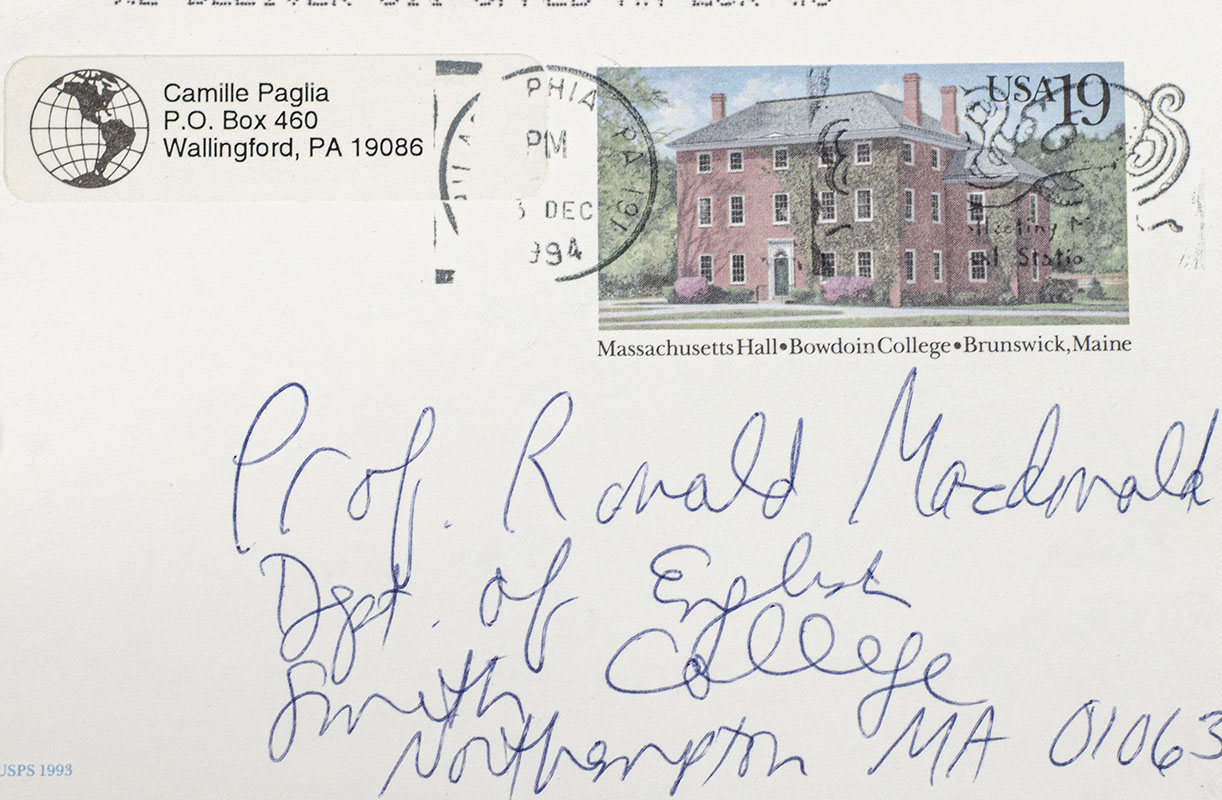 Camille Paglia
P.O. Box 460
Wallingford, PA 19086
PHIA PA 191
PM
DEC
USA 19
Massachusetts Hall•Bowdoin College•Brunswick, Maine
Prof. Ronald Macdonald
Dept. of English
Smith College
Northampton MA 01063
USPS 1993